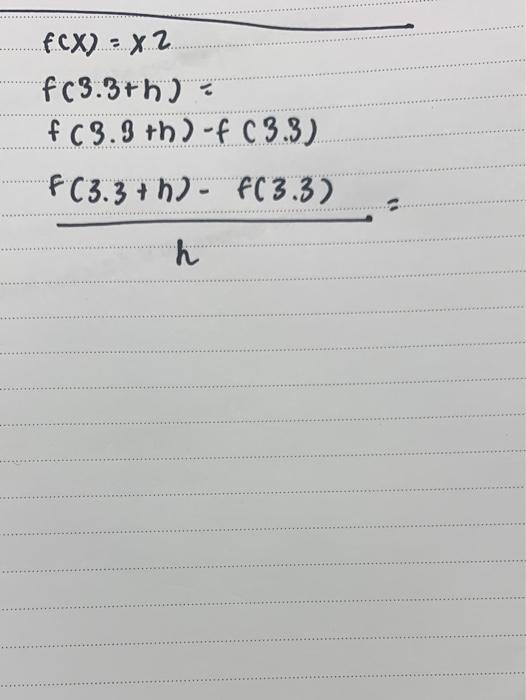 f(x) = x2
f(3.3+h) =
f(3.3+h)-f(3.3)
f(3.3+h)- f(3.3) =
h